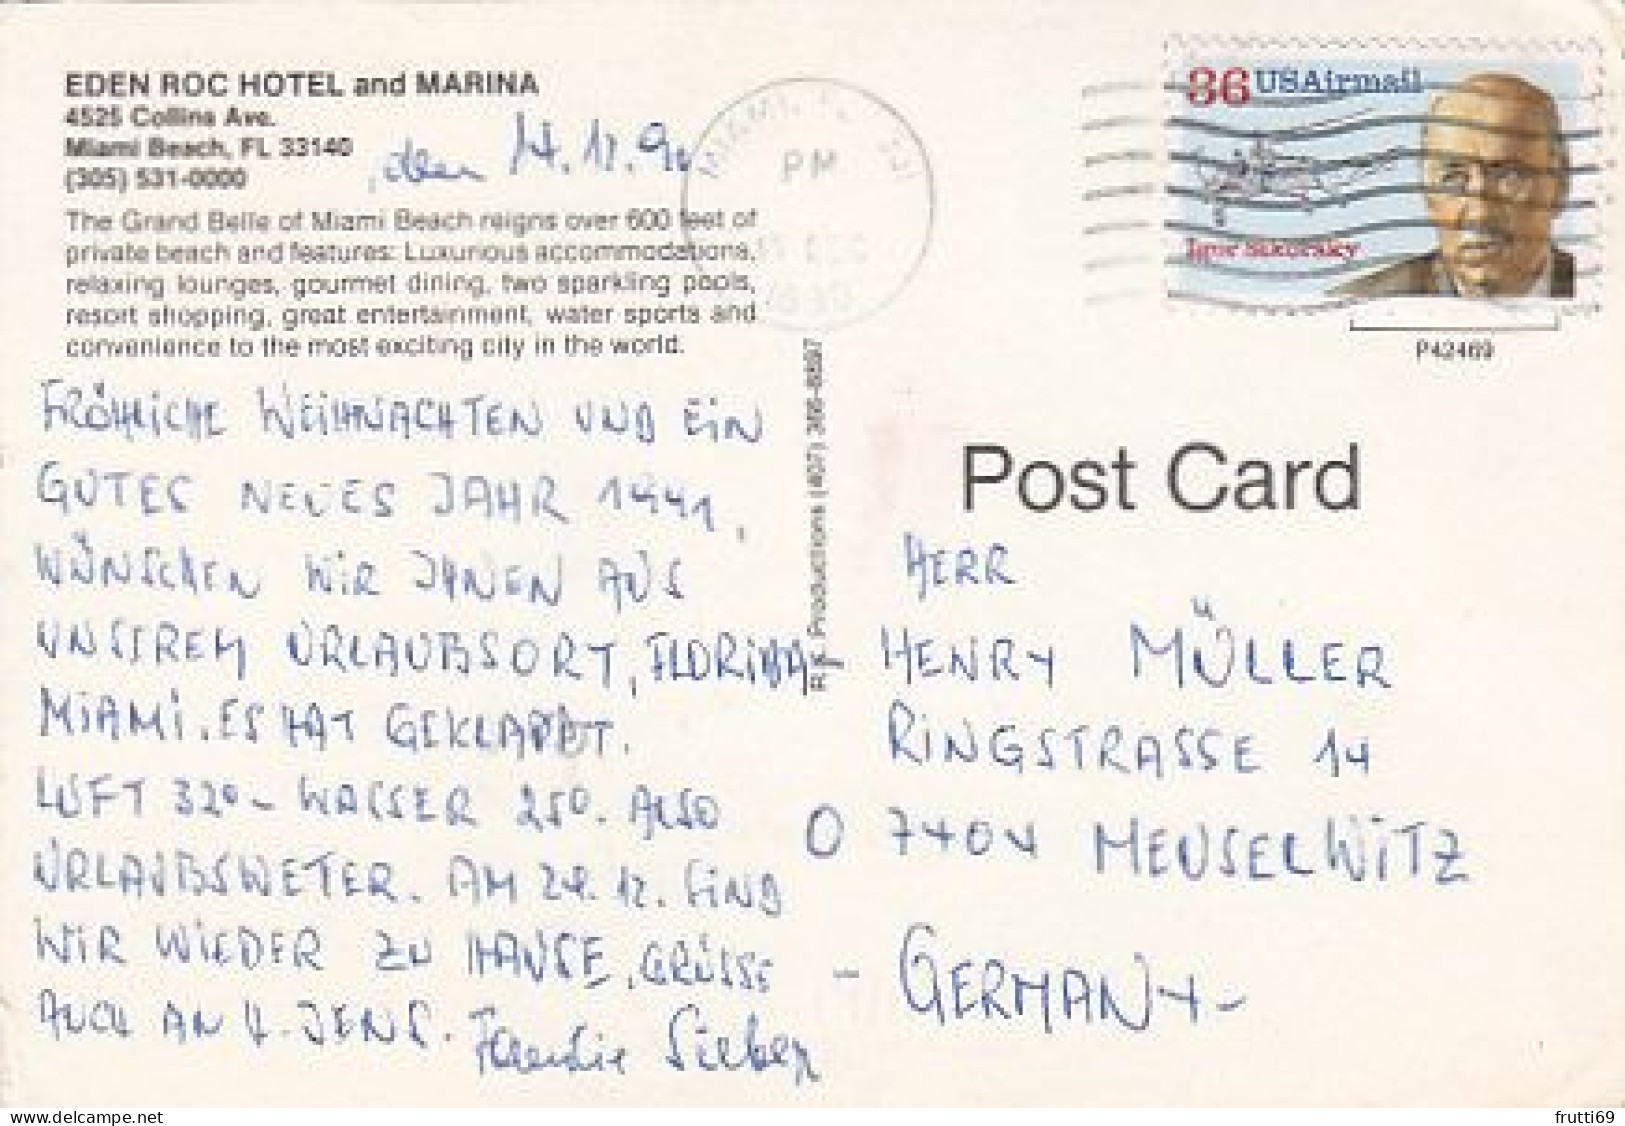 EDEN ROC HOTEL and MARINA
4525 Collins Ave.
Miami Beach, FL 33140
(305) 531-0000
, den 14.12.90
The Grand Belle of Miami Beach reigns over 600 feet of
private beach and features: Luxurious accommodations,
relaxing lounges, gourmet dining, two sparkling pools,
resort shopping, great entertainment, water sports and
convenience to the most exciting city in the world.
FRÖHLICHE WEIHNACHTEN UND EIN
GUTES NEUES JAHR 1991,
WÜNSCHEN WIR IHNEN AUS
UNSEREM URLAUBSORT, FLORIDA-
MIAMI. ES HAT GEKLAPPT.
LUFT 32° - WASSER 25°. ALSO
URLAUBSWETER. AM 29.12. SIND
WIR WIEDER ZU HAUSE, GRÜSSE
AUCH AN H. JENS. Familie
Productions (407) 366-8597
MIAMI, FL
PM
DEC
1990
36 USAirmail
Igor Sikorsky
P42469
Post Card
HERR
HENRY MÜLLER
RINGSTRASSE 14
O 7404 MEUSELWITZ
- GERMANY -
frutti69